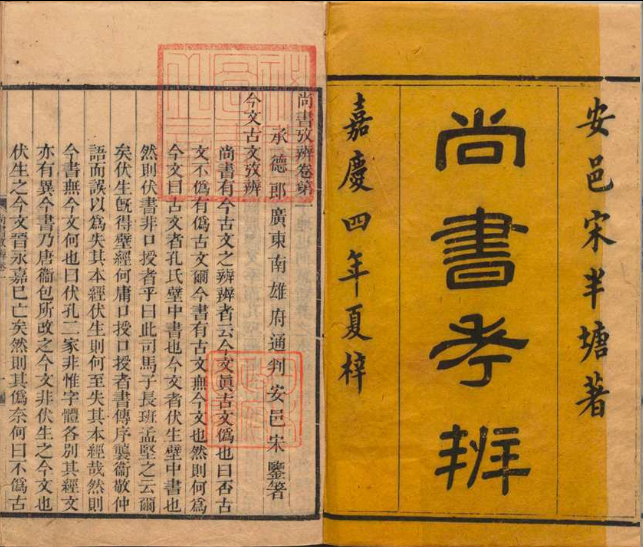 安邑宋半塘著
尚書考辨
嘉慶四年夏梓
尚書攷辨卷第一
承德郎廣東南雄府通判安邑宋鑒著
今文古文攷辨
尚書有今古文之辨辨者云今文眞古文僞也曰否古
文不僞有僞古文爾今書有古文無今文也然則何爲
今文曰古文者孔氏壁中書也今文者伏生壁中書也
然則伏書非口授者乎曰此司馬子長班孟堅之云爾
矣伏生旣得壁經何庸口授口授者書傳序襲衞敬仲
語而誤以爲失其本經伏生則何至失其本經哉然則
今書無今文何也曰伏孔二家非惟字體各別其經文
亦有異今書乃唐衞包所改之今文非伏生之今文也
伏生之今文晉永嘉已亡矣然則其爲奈何曰不爲古